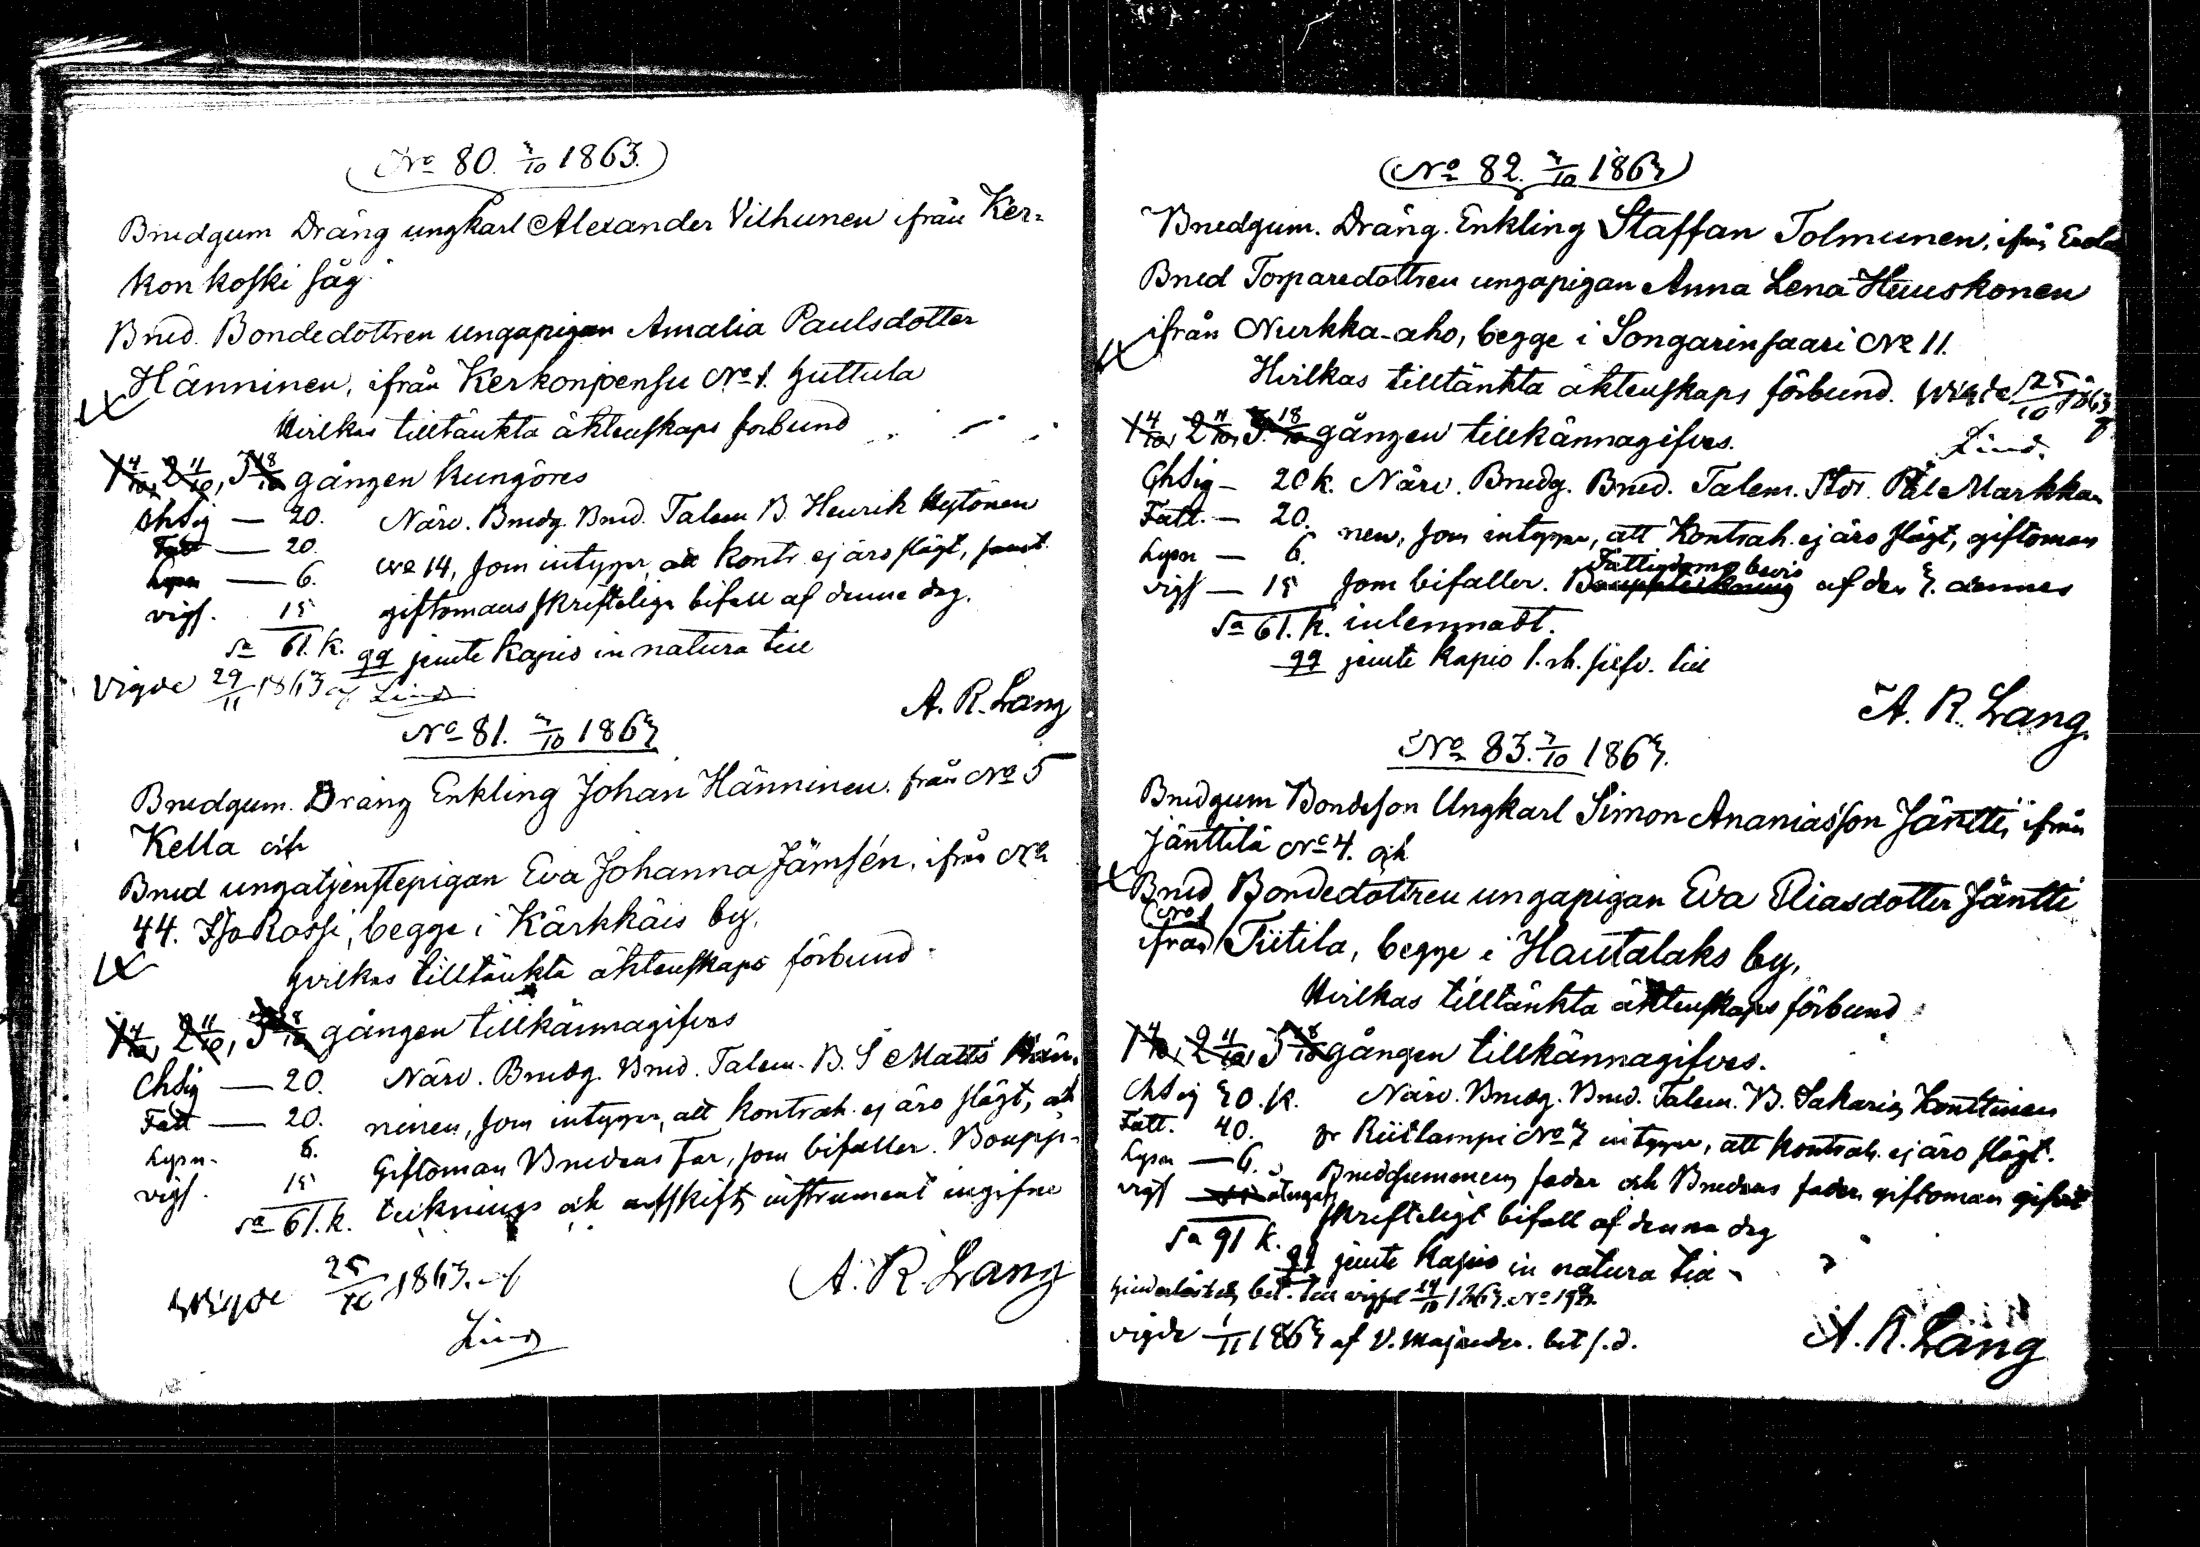 No 80. 3/10 1863.
Brudgum Dräng ungkarl Alexander Vilhunen ifrån Ker-
konkoski såg
Brud. Bondedottren ungapigan Amalia Paulsdotter
Hänninen, ifrån Kerkonjensu No 1. Huttula
Hvilkas tilltänkta äktenskaps förbund
1 4/10, 2 11/10, 3 18/10 gången kungöres
ChSig — 20. Närv. Brudg. Brud. Talem B. Henrik Hytönen
Fatt — 20. No 14, som intygar, att kontr. ej äro slägt, samt
Lysn — 6. giftomans skrifteliga bifall af denna dag.
vigs. 15
Sa 61. k. 99 jemte kapio in natura till
Vigde 29/11 1863 af Lind
A. R. Lang
No 81. 3/10 1863
Brudgum. Dräng Enkling Johan Hänninen. från No 5
Kella och
Brud ungatjenstepigan Eva Johanna Jämsén, ifrån No
44. Iso Rossi, begge i Kärkkäis by,
hvilkas tilltänkta äktenskaps förbund
1 4/10, 2 11/10, 3 18/10 gången tillkännagifves
ChSig — 20. Närv. Brudg. Brud. Talem. B. S Matts Hän-
Fatt — 20. ninen, som intygar, att kontrah. ej äro slägt, och
Lysn. 6. Giftoman Brudens Far, som bifaller. Boupp-
vigs. 15 tecknings och arfskifts instrument ingifne
Sa 61. k.
Wigde 25/10 1863. af
Lind
A. R. Lang
No 82. 3/10 1863
Brudgum. Dräng. Enkling Staffan Tolmunen, ifrån
Brud Torparedottren ungapigan Anna Lena Huuskonen
ifrån Nurkka-aho, begge i Songarinsaari No 11.
Hvilkas tilltänkta äktenskaps förbund. Wigde 25/10 1863
Lind.
1 4/10, 2 11/10, 3 18/10 gången tillkännagifves.
ChSig — 20 k. Närv. Brudg. Brud. Talem. Std. Pål Markka-
Fatt. — 20. nen, som intygar, att kontrah. ej äro slägt, giftoman
Lysn — 6. Fattigdoms bevis
vigs — 15 som bifaller. Bouppteckning af den 3. dennes
Sa 61. k. inlemnadt.
99 jemte kapio 1. rb. silfv. till
A. R. Lang.
No 83. 3/10 1863.
Brudgum Bondeson Ungkarl Simon Ananiasson Jäntti, ifrån
Jänttilä No 4. och
Brud Bondedottren ungapigan Eva Eliasdotter Jäntti
No 1
ifrån Tiitila, begge i Hautalaks by,
Hvilkas tilltänkta äktenskaps förbund
1 4/10, 2 11/10, 3 18/10 gången tillkännagifves.
ChSig 30. k. Närv. Brudg. Brud. Talem. B. Sakarias Konttinen
Fatt. 40. fr Riitlampi No 7 intygar, att kontrah. ej äro slägt.
Lysn — 6. Brudgummens fader och Brudens fader, giftoman gifvit
vigs skrifteligt bifall af denna dag
Sa 91 k.
99 jemte kapio in natura till
bet. till vigsel 14/10 1863. No 198.
vigde 1/11 1863 af V. Majander. bet s. d.
A. R. Lang